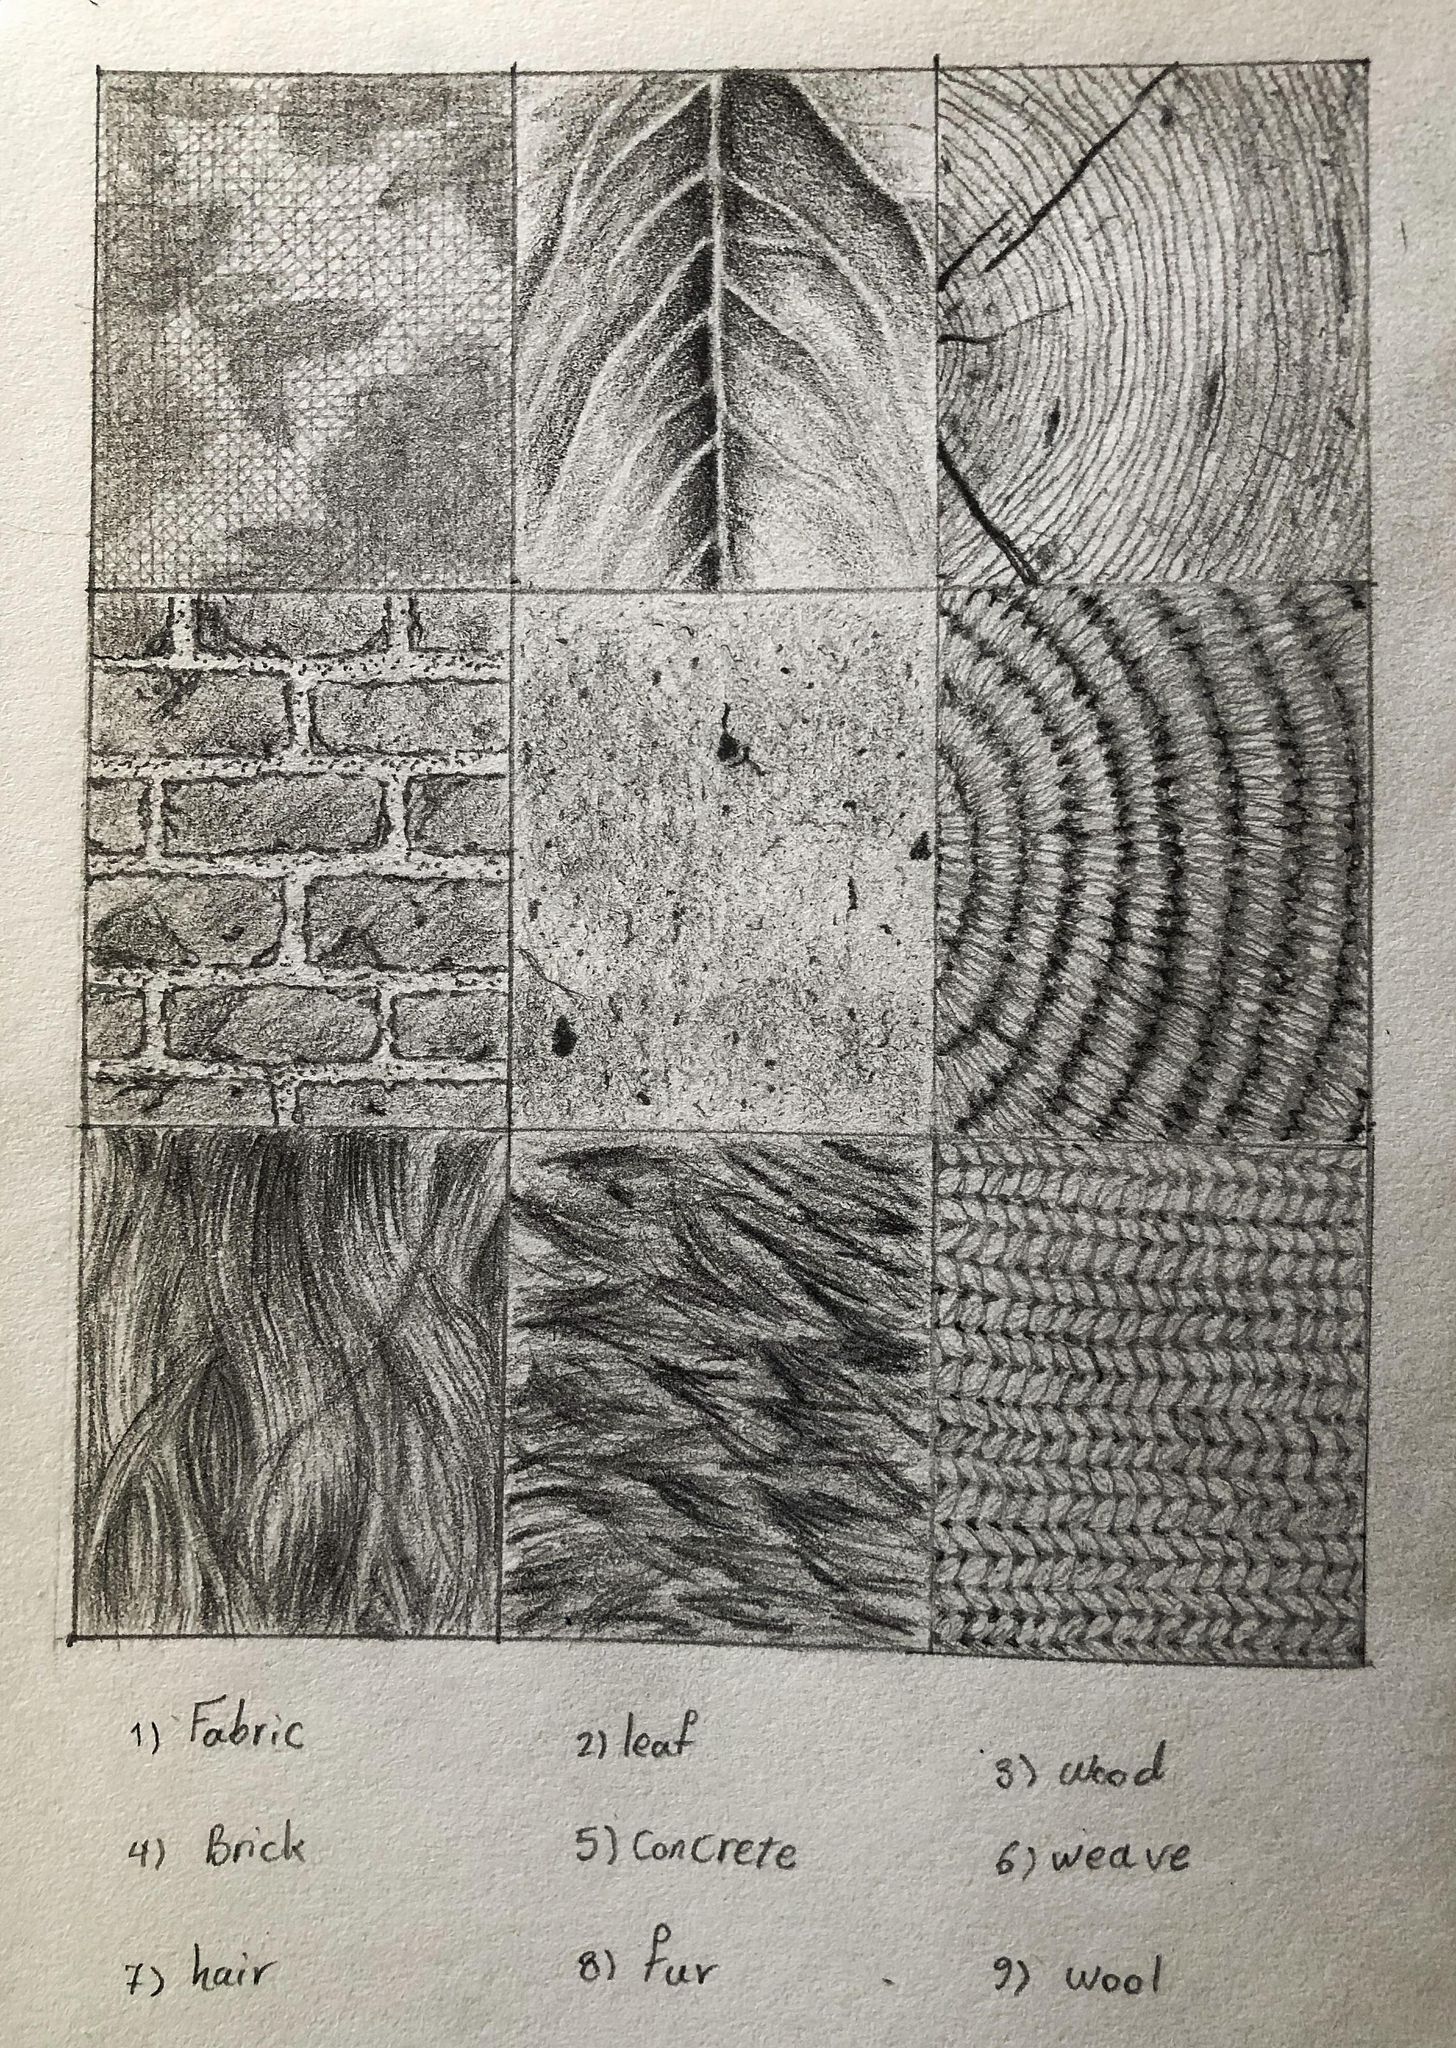 1) Fabric 2) leaf 3) wood
4) Brick 5) Concrete 6) weave
7) hair 8) fur 9) wool